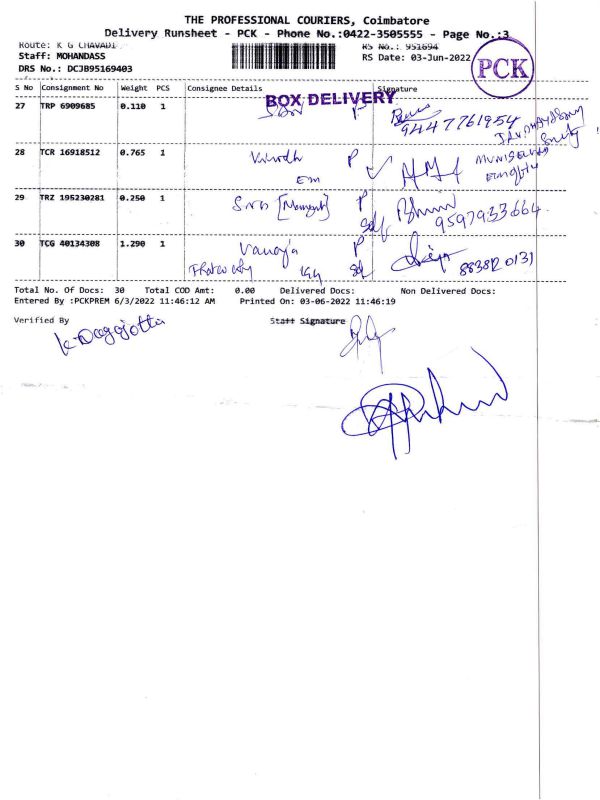 THE PROFESSIONAL COURIERS, Coimbatore
Delivery Runsheet - PCK - Phone No.:0422-3505555 - Page No.:3
Route: K G CHAVADI
RS No.: 951694
Staff: MOHANDASS
RS Date: 03-Jun-2022
DRS No.: DCJB95169403
PCK
S No Consignment No Weight PCS Consignee Details Signature
BOX DELIVERY
27 TRP 6909685 0.110 1 P
9447761954
28 TCR 16918512 0.765 1 P
29 TRZ 195230281 0.250 1 P
9597933664
30 TCG 40134308 1.290 1 Vanaja P
883812 0131
Total No. Of Docs: 30 Total COD Amt: 0.00 Delivered Docs: Non Delivered Docs:
Entered By :PCKPREM 6/3/2022 11:46:12 AM Printed On: 03-06-2022 11:46:19
Verified By Staff Signature